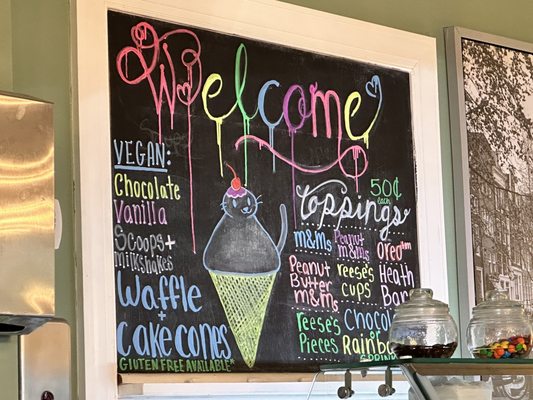 Welcome
VEGAN:
Chocolate
Vanilla
Scoops +
milkshakes
Waffle
+
cake cones
GLUTEN FREE AVAILABLE*
toppings 50¢
each
m&ms
Peanut
m&ms
Oreo
Peanut
Butter
m&ms
reese's
cups
Heath
Bar
Reese's
Pieces
Chocol
or
Rainbow
SPRINK